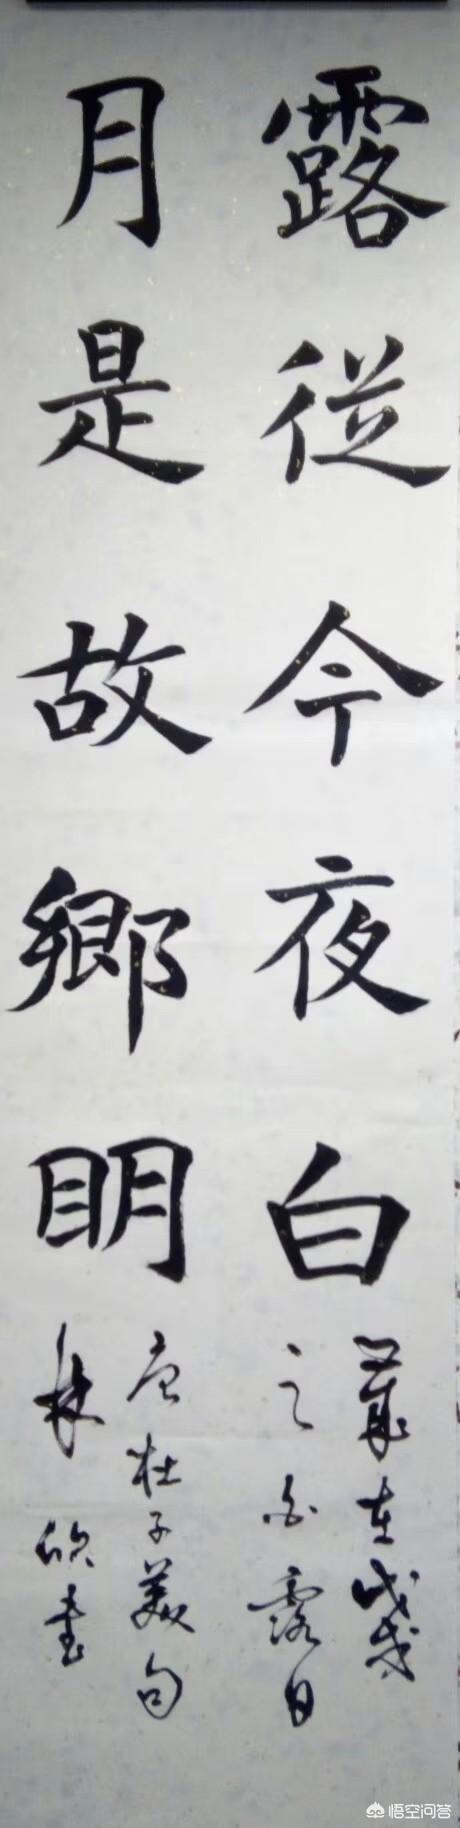 露従今夜白
歲在戊戌
之白露日
月是故鄉眀
唐杜子美句
林欣書
悟空问答